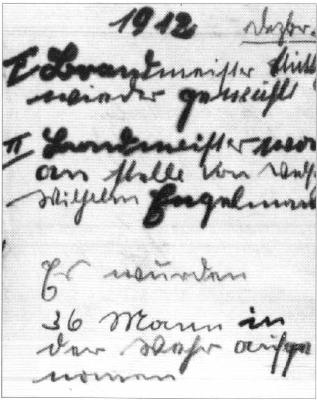 1912 Dezbr.
I Brandmeister
wieder gewählt
II Brandmeister wor
an stelle von
Wilhelm Engelman
Es wurden
36 Mann in
der Wehr aufge
nomen